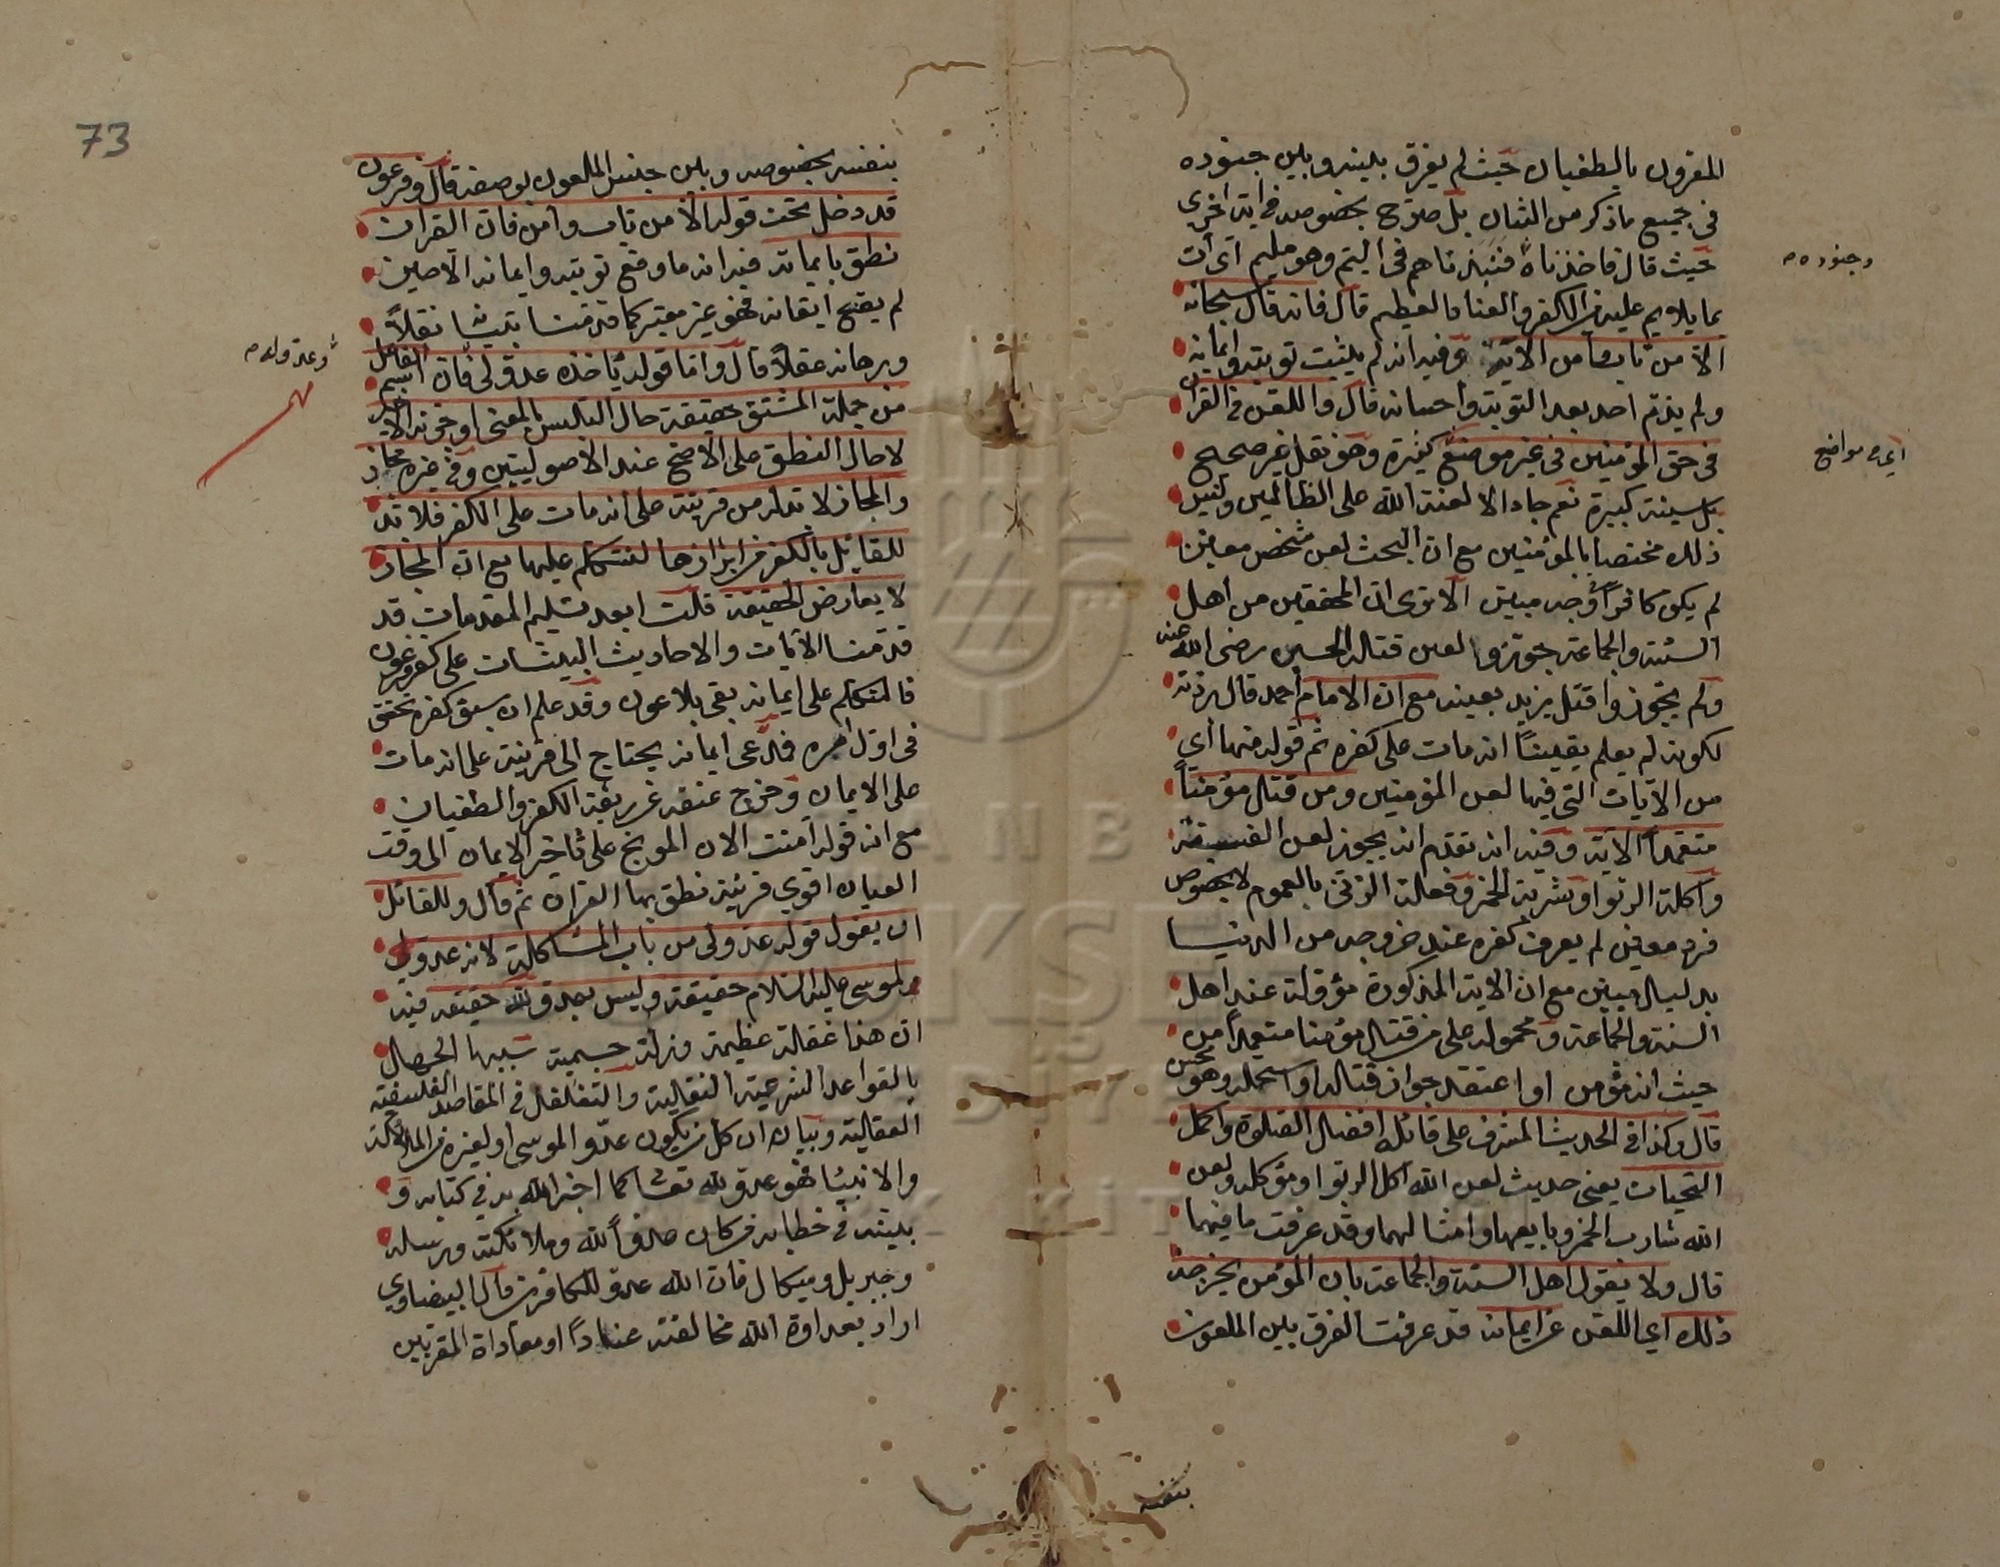 المقرون بالطغيان حيث لم يفرق بينه وبين جنوده
في جميع ما ذكر من الشان بل صرّح بخصوصه في اية اخرى
حيث قال فاخذناه فنبذناهم في اليّم وهو مليم اى آت
وجنوده صح
بما يلايم عليه من الكفر والعناد العظيم قال فانه قال سبحانه
الا من تاب وآمن الآية وفيه انه لم يثبت توبته وايمانه
ولم يذمّ احد بعد التوبة واحسانه قال واللعن في القرآن
في حق المؤمنين في غير موضع كثيرة وهو نقل غير صحيح
اى في مواضع
بل سيئة كبيرة نعم جاء الا لعنة الله على الظالمين وليس
ذلك مختصا بالمؤمنين مع ان البحث لعن شخص معين
لم يكن كافرا بوجه مبين الا ترى ان المحققين من اهل
السنة والجماعة جوّزوا لعن قتلة الحسين رضي الله عنه
ولم يجوزوا قتل يزيد بعينه مع ان الامام احمد قال بردته
لكونه لم يعلم يقينًا انه مات على كفره ثم قوله منها اي
من الآيات التي فيها لعن المؤمنين ومن قتل مؤمنًا
متعمدًا الآية وفيه انه تقدم انه يجوز لعن الفسقة
وآكلة الربوا وشربة الخمر وفعلة الزنى بالعموم لا بخصوص
فرد معين لم يعرف كفره عند خروجه من الدنيا
بدليل مبين مع ان الآية المذكورة مؤولة عند اهل
السنة والجماعة ومحمولة على من قتل مؤمنا متعمدا من
حيث انه مؤمن او اعتقد جواز قتله او استحله وهو
قال وكذا في الحديث المشرف على قائله افضل الصلوة واكمل
التحيات يعني حديث لعن الله آكل الربوا ومؤكله ولعن
الله شارب الخمر وبايعها وامثالهما وقد عرفت ما فيهما
قال ولا يقول اهل السنة والجماعة بان المؤمن يخرجه
ذلك اي اللعن عن ايمانه قد عرفت الفرق بين الملعون
بنفسه
73
بنفسه بخصوصه وبين جنس الملعون بوصفه قال وفرعون
قد دخل تحت قوله الا من تاب وآمن فان القرآن
نطق بايمانه فيه انه ما وقع توبته وايمانه الا حين
لم يقع ايقانه فهو غير معتبر كما قدمنا بتيانه نقلاً
وبرهانه عقلاً قال واما قوله يأخذه عدو لي فان اسم الفاعل
وعدو له صح
من جملة المشتق حقيقة حال التلبس بالمعنى او جزئه الاخير
لا حال النطق على الاصح عند الاصوليين وفي غيره مجاز
والمجاز لا بد له من قرينة على انه مات على الكفر فلا بد
للقائل بالكفر من ابرازها لنتكلم عليها مع ان المجاز
لا يعارض الحقيقة قلت ابعد تسليم المقدمات قد
قدمنا الآيات والاحاديث البينات على كفر فرعون
فالتكلم على ايمانه بقي بلا عون وقد علم ان سبق كفره تحقق
في اول امره فمدعي ايمانه يحتاج الى قرينة على انه مات
على الايمان وخرج عنقه عن ربقة الكفر والطغيان
مع ان قوله آمنت الان الموبخ على تأخير الايمان الى وقت
العيان اقوى قرينة نطق بها القرآن ثم قال وللقائل
ان يقول قوله عدو لي من باب المشاكلة لانه عدو
لموسى عليه السلام حقيقة وليس بعدو لله حقيقة فيه
ان هذا غفلة عظيمة وزلة جسيمة سببها الجهل
بالقواعد الشرعية النقلية والتغلغل في المقاصد الفلسفية
العقلية وبيانه ان كل من يكون عدوا لموسى او لغيره من الملائكة
والانبيا فهو عدو لله تعالى كما اخبر الله به في كتابه و
بينه في خطابه من كان عدوا لله وملائكته ورسله
وجبريل وميكال فان الله عدو للكافرين قال البيضاوي
اراد بعداوة الله مخالفته عنادًا او معاداة المقربين